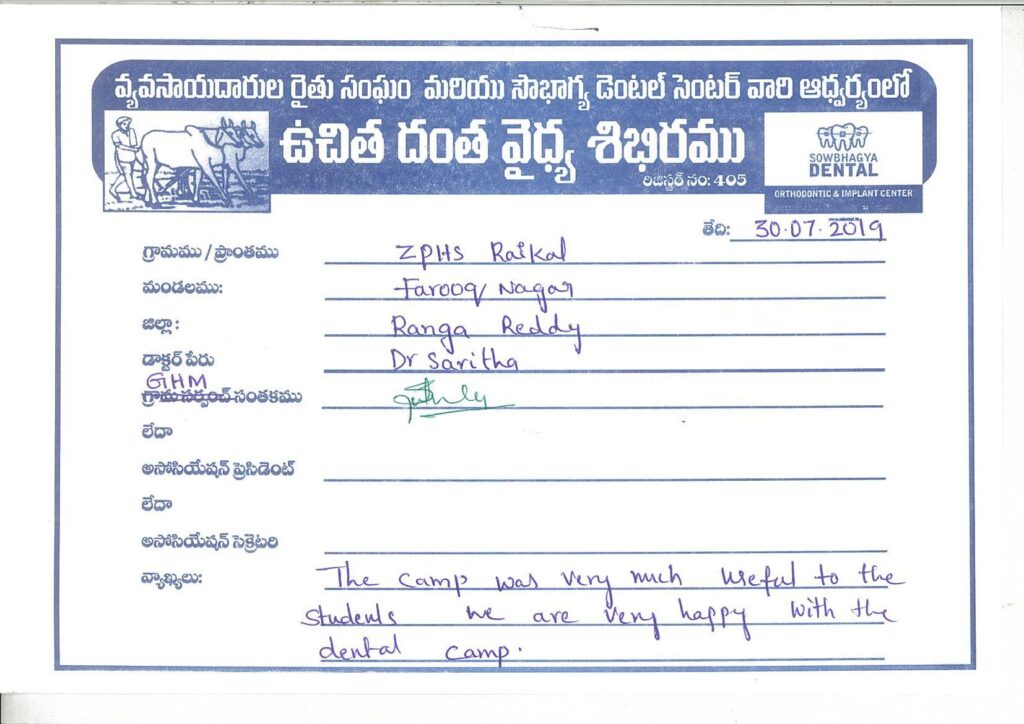 వ్యవసాయదారుల రైతు సంఘం మరియు సౌభాగ్య డెంటల్ సెంటర్ వారి ఆధ్వర్యంలో
ఉచిత దంత వైధ్య శిభిరము
రిజిస్టర్ నం: 405
SOWBHAGYA
DENTAL
ORTHODONTIC & IMPLANT CENTER
తేది: 30.07.2019
గ్రామము / ప్రాంతము ZPHS Raikal
మండలము: Farooq Nagar
జిల్లా: Ranga Reddy
డాక్టర్ పేరు Dr Saritha
GHM
గ్రామ సర్పంచ్ సంతకము
లేదా
అసోసియేషన్ ప్రెసిడెంట్
లేదా
అసోసియేషన్ సెక్రెటరి
వ్యాఖ్యలు: The camp was very much useful to the
students we are very happy with the
dental camp.